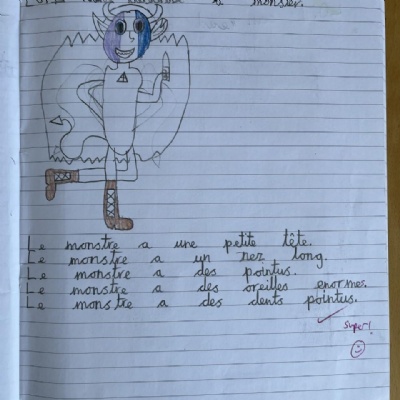 monster.
Le monstre a une petite tête.
Le monstre a un nez long.
Le monstre a des pointus.
Le monstre a des oreilles enormes.
Le monstre a des dents pointus.
super!